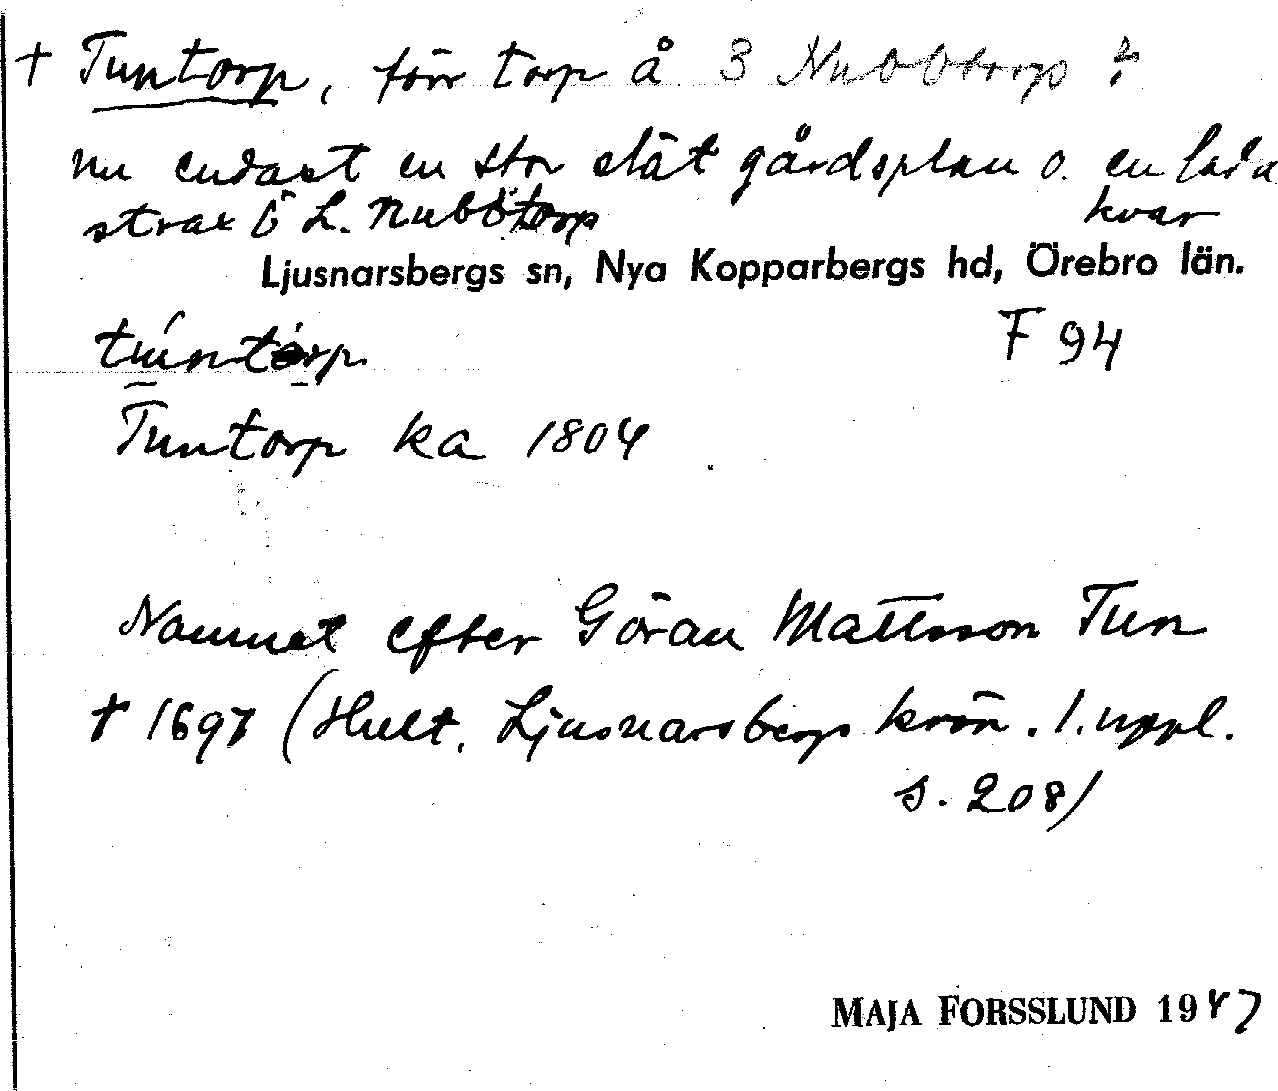 † Tuntorp, förr torp å 3 Nubbtorp
nu endast en stor slät gårdsplan o. en lada
strax Ö L. Nubbtorp kvar
Ljusnarsbergs sn, Nya Kopparbergs hd, Örebro län.
túntòrp F 94
Tuntorp ka 1804
Namnet efter Göran Mattsson Tun
† 1697 (Hult. Ljusnarsbergs krön. 1. uppl.
s. 208)
MAJA FORSSLUND 1947